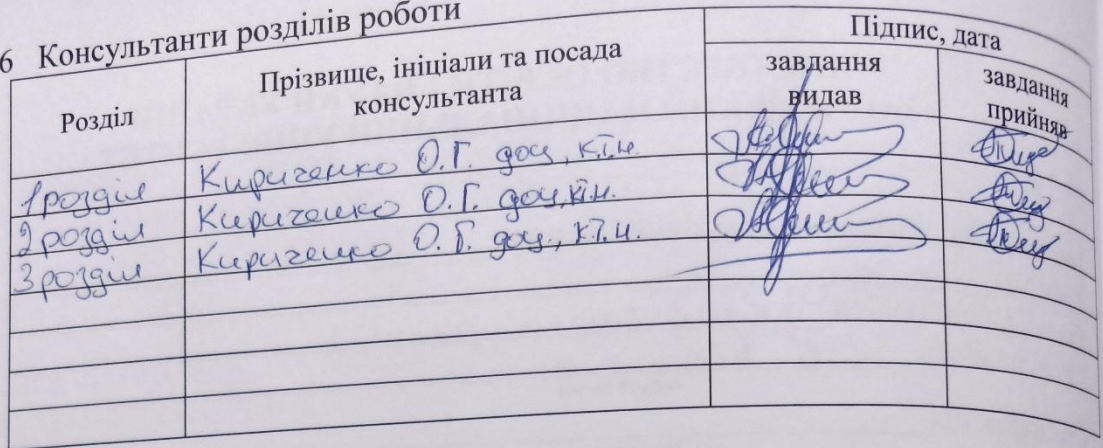 6 Консультанти розділів роботи
Розділ
Прізвище, ініціали та посада
консультанта
Підпис, дата
завдання
видав
завдання
прийняв
1 розділ Кириченко О.Г. доц., к.т.н.
2 розділ Кириченко О.Г. доц., к.т.н.
3 розділ Кириченко О.Г. доц., к.т.н.